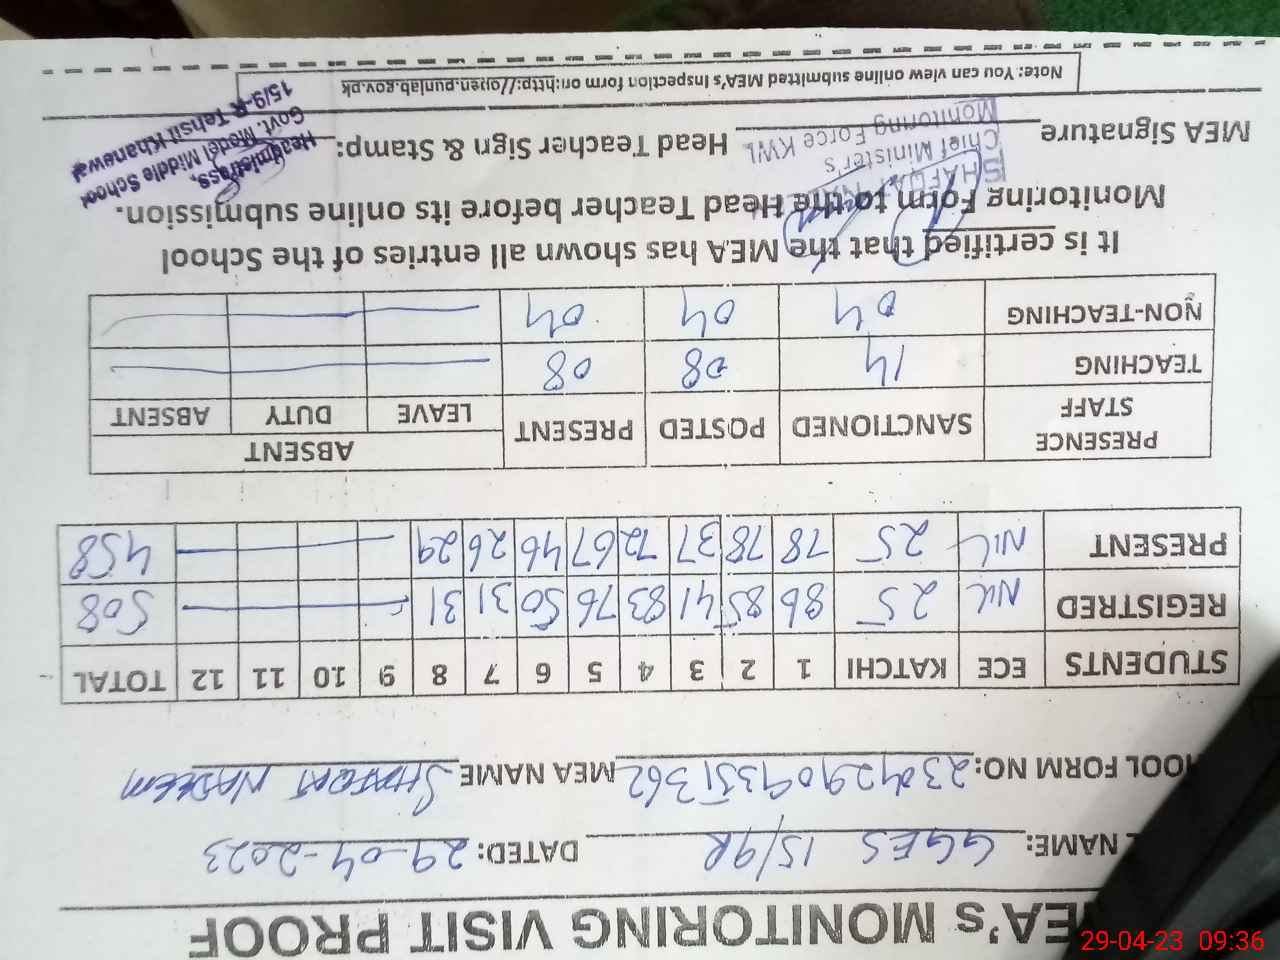 MEA's MONITORING VISIT PROOF
NAME: GGES 15/9R DATED: 29-04-2023
OOL FORM NO: 230429093351362 MEA NAME SHAFQAT NADEEM
STUDENTS ECE KATCHI 1 2 3 4 5 6 7 8 9 10 11 12 TOTAL
REGISTRED NIL 25 86 85 41 83 76 50 31 31 508
PRESENT NIL 25 78 78 37 72 67 46 26 29 458
PRESENCE STAFF SANCTIONED POSTED PRESENT ABSENT
LEAVE DUTY ABSENT
TEACHING 14 08 08
NON-TEACHING 04 04 04
It is certified that the MEA has shown all entries of the School
Monitoring Form to the Head Teacher before its online submission.
MEA Signature Head Teacher Sign & Stamp:
SHAFQAT
Chief Minister's
Monitoring Force KWL
Headmistress,
Govt. Model Middle School
15/9-R Tehsil Khanewal
Note: You can view online submitted MEA's Inspection form on:http://open.punjab.gov.pk
29-04-23 09:36